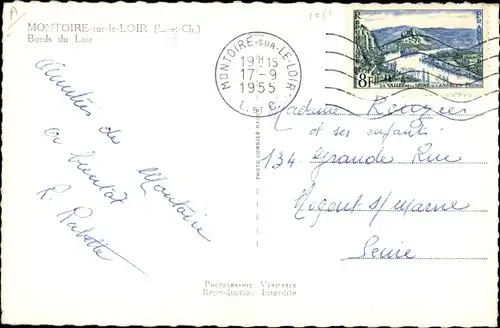 MONTOIRE-sur-le-LOIR (L.-et-Ch.)
Bords du Loir
Amitiés de Montoire
a bientôt
R. Rabotte
PHOTO-COMBIER
MONTOIRE-SUR-LE-LOIR
19H15
17-9
1955
L. et C.
8F
LA VALLÉE DE LA SEINE AUX ANDELYS
Madame
et ses enfants
134 Grande Rue
Nogent s/ Marne
Seine
PHOTOGRAPHIE VÉRITABLE
Reproduction Interdite